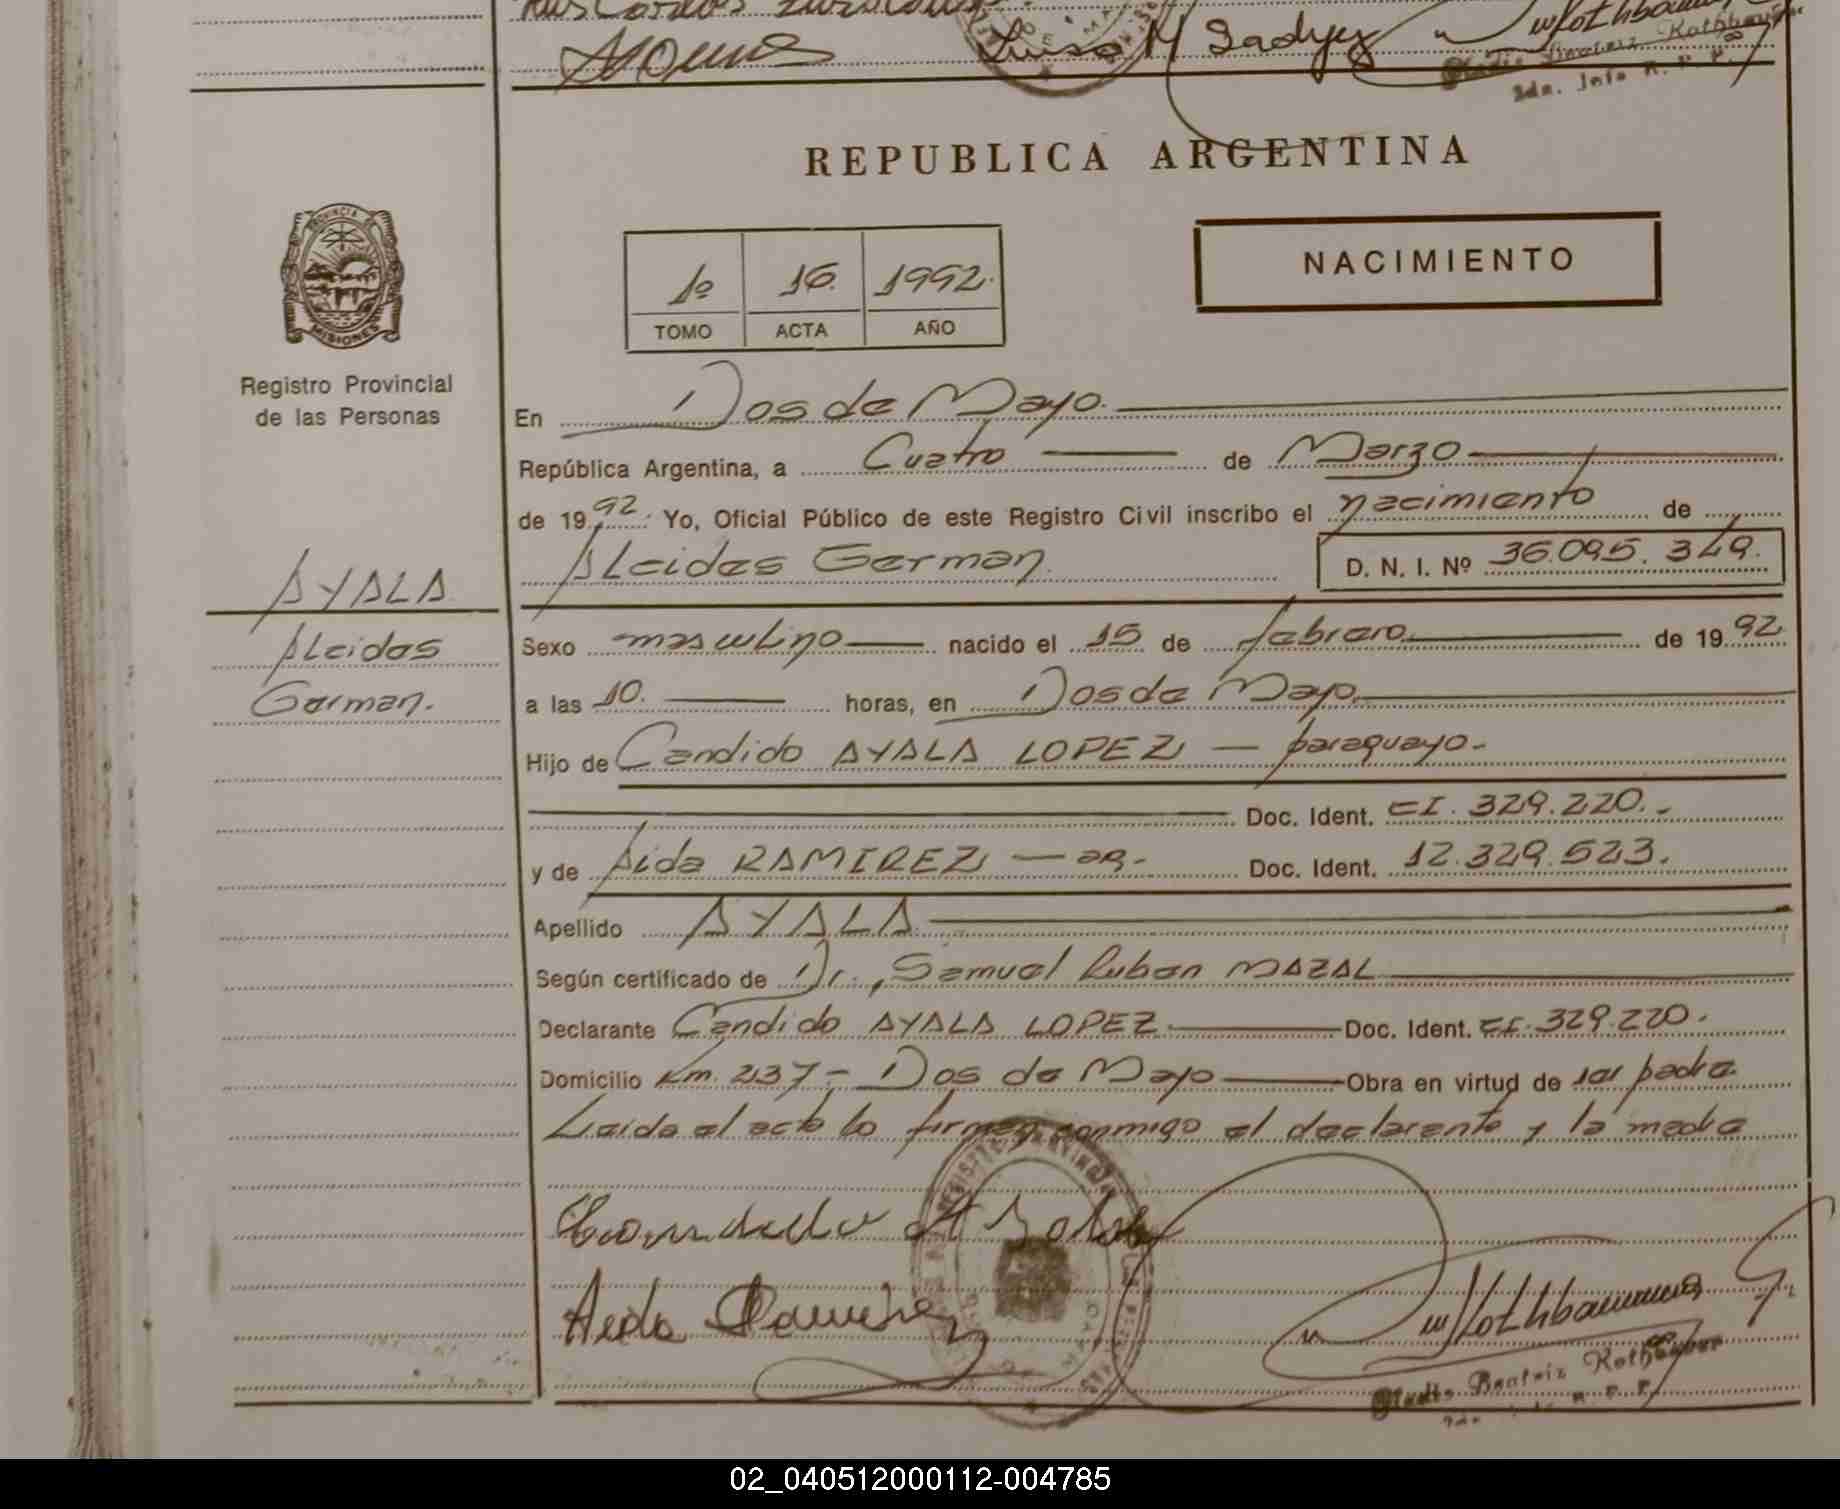 Luisa M
2da. Jefe R. P. P.
REPUBLICA ARGENTINA
PROVINCIA DE
MISIONES
Registro Provincial
de las Personas
1º 16. 1992.
TOMO ACTA AÑO
NACIMIENTO
En Dos de Mayo.
República Argentina, a Cuatro de Marzo
de 1992. Yo, Oficial Público de este Registro Civil inscribo el nacimiento de
Alcides German. D. N. I. Nº 36.095.349.
AYALA
Alcides
German.
Sexo masculino nacido el 15 de febrero de 1992
a las 10. horas, en Dos de Mayo.
Hijo de Candido AYALA LOPEZ — paraguayo.-
Doc. Ident. CI. 329.220.-
y de Aida RAMIREZ — ar.- Doc. Ident. 12.329.523.
Apellido AYALA
Según certificado de Dr., Samuel Ruben MAZAL
Declarante Candido AYALA LOPEZ Doc. Ident. CI. 329.220.
Domicilio Km. 237 - Dos de Mayo Obra en virtud de ser padre
Leida el acta la firman conmigo el declarante y la madre
Aida Ramirez
Gladis Beatriz Rothbauer
02_040512000112-004785